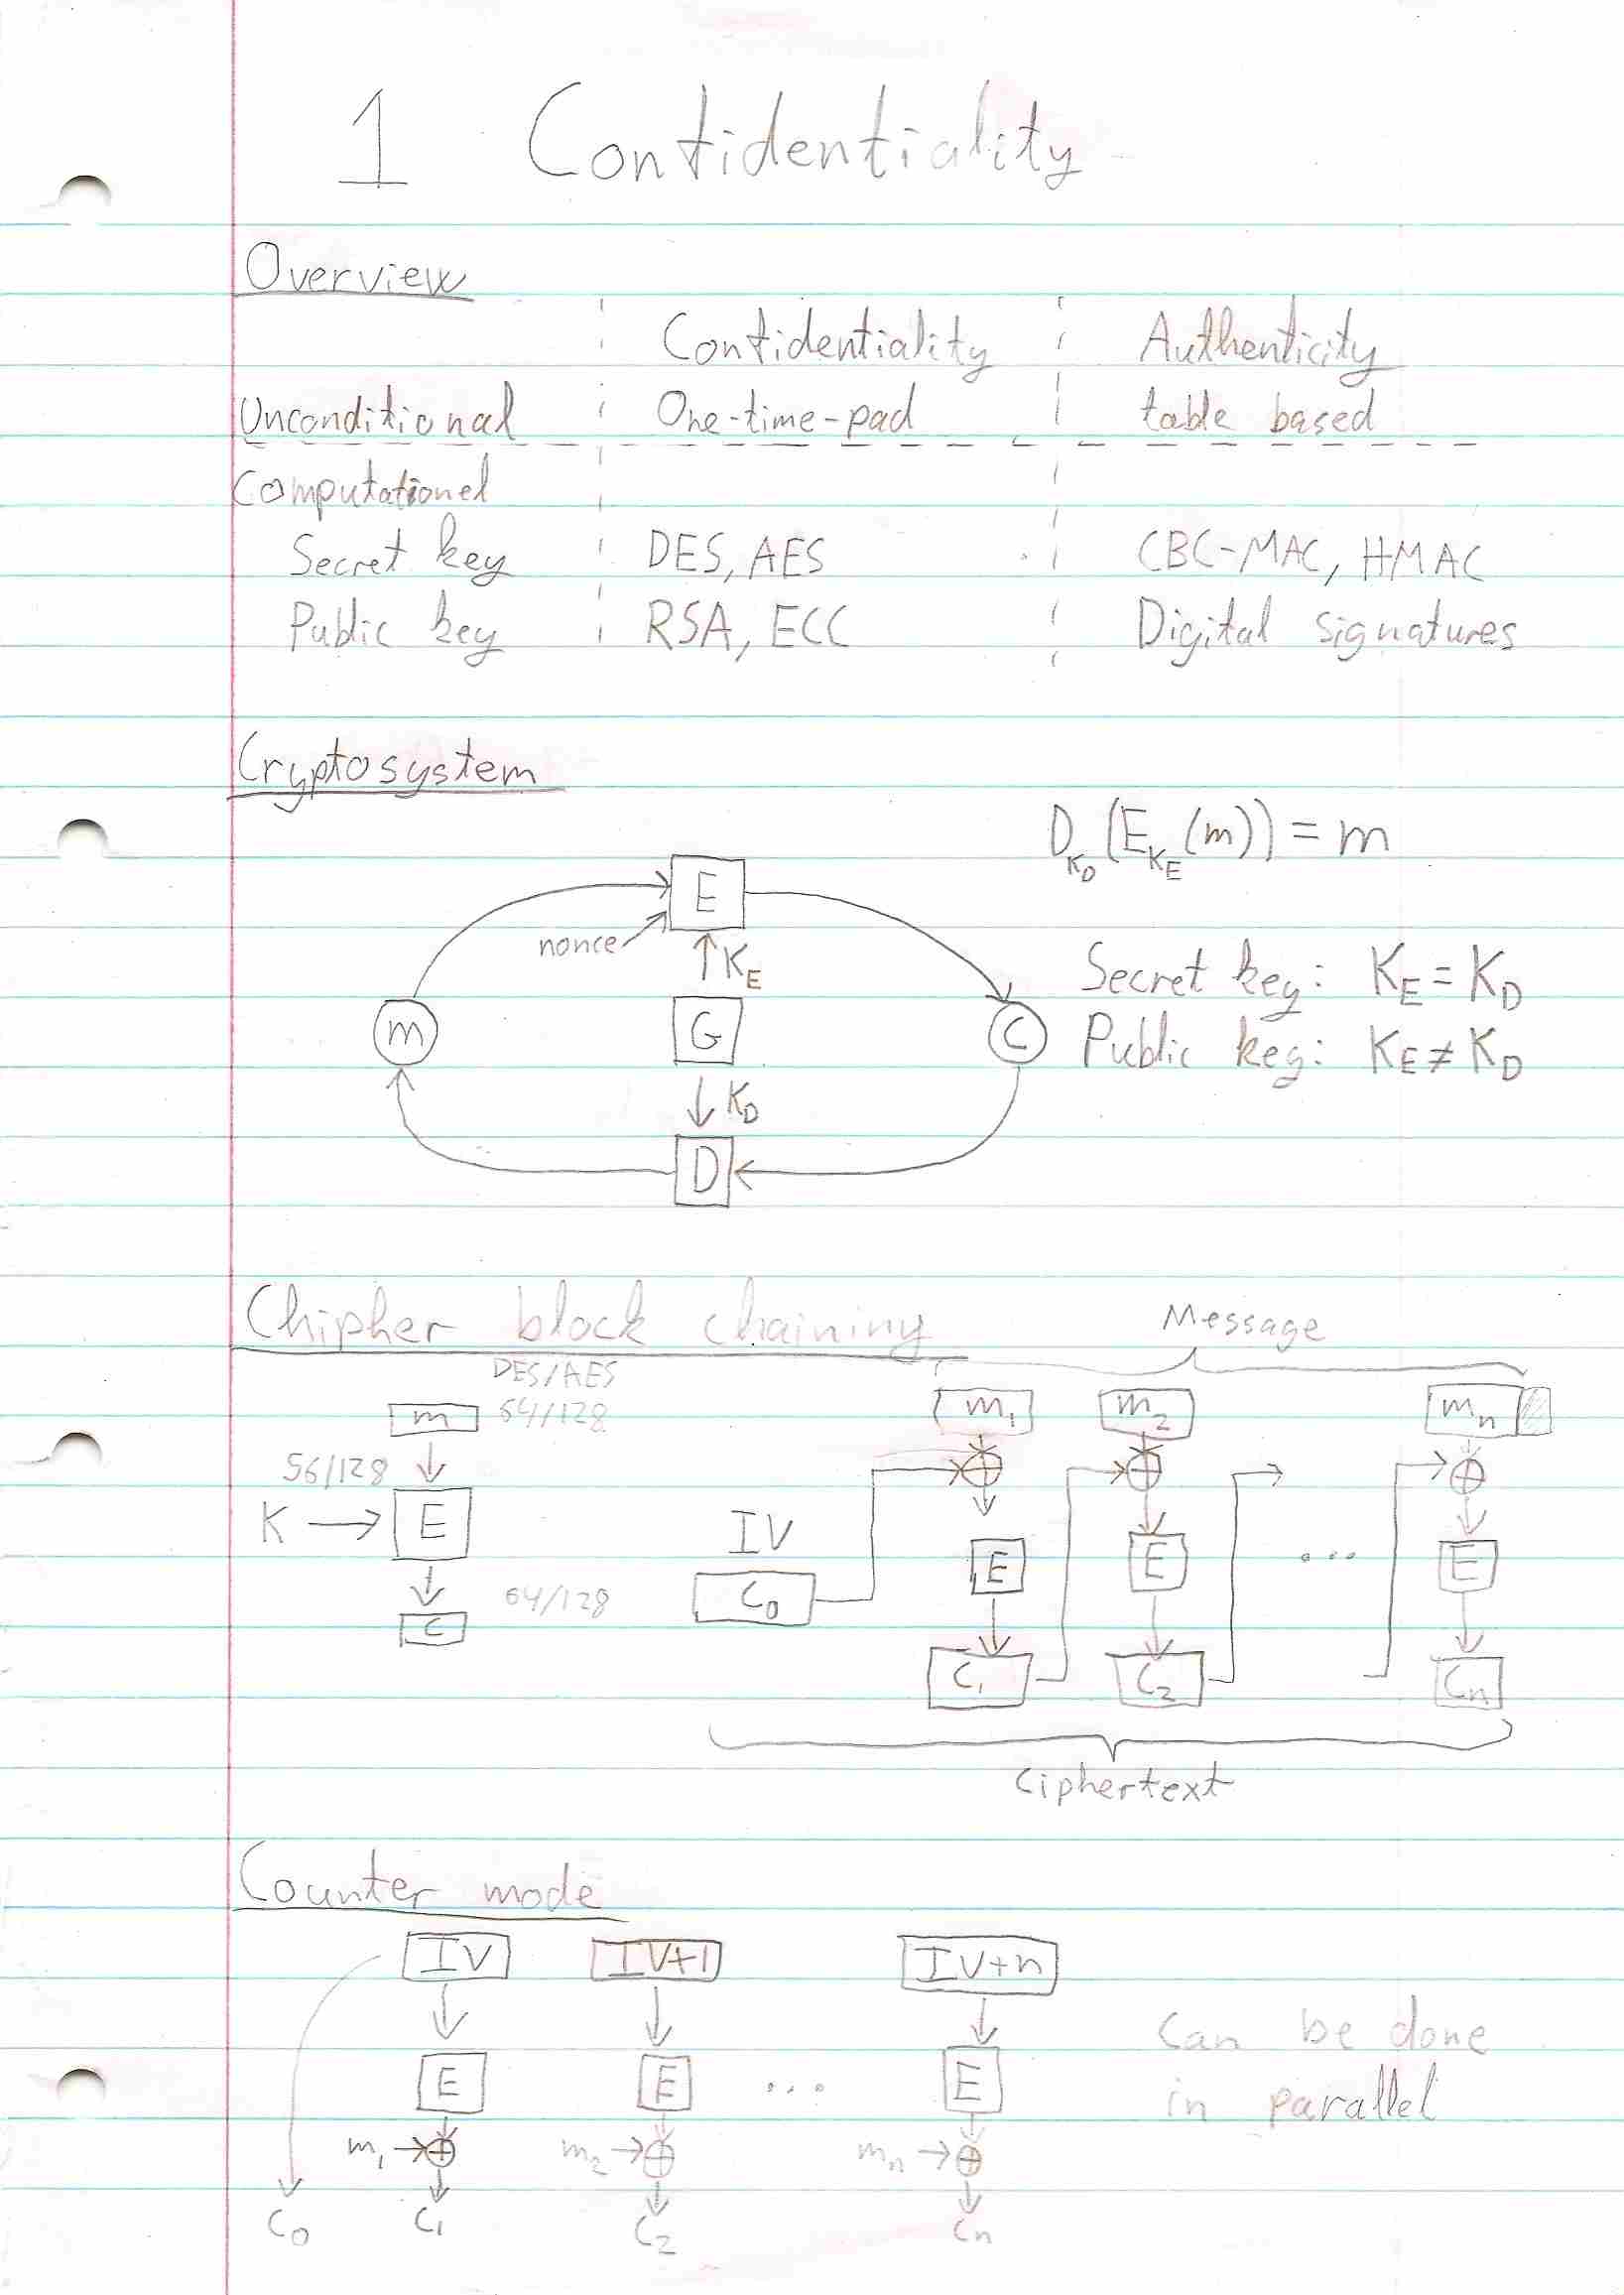 1 Confidentiality
Overview
Confidentiality Authenticity
Unconditional One-time-pad table based
Computationel
Secret key DES, AES CBC-MAC, HMAC
Public key RSA, ECC Digital signatures
Cryptosystem
D_{K_D}(E_{K_E}(m)) = m
E
nonce
K_E
Secret key: K_E = K_D
m G C
Public key: K_E ≠ K_D
K_D
D
Chipher block chaining
Message
DES/AES
m 64/128
m_1 m_2 m_n
56/128
⊕ ⊕ ⊕
K → E
IV
E E ... E
C_0
64/128
c
C_1 C_2 C_n
Ciphertext
Counter mode
IV IV+1 IV+n
Can be done
E E ... E
in parallel
m_1 → ⊕ m_2 → ⊕ m_n → ⊕
C_0 C_1 C_2 C_n